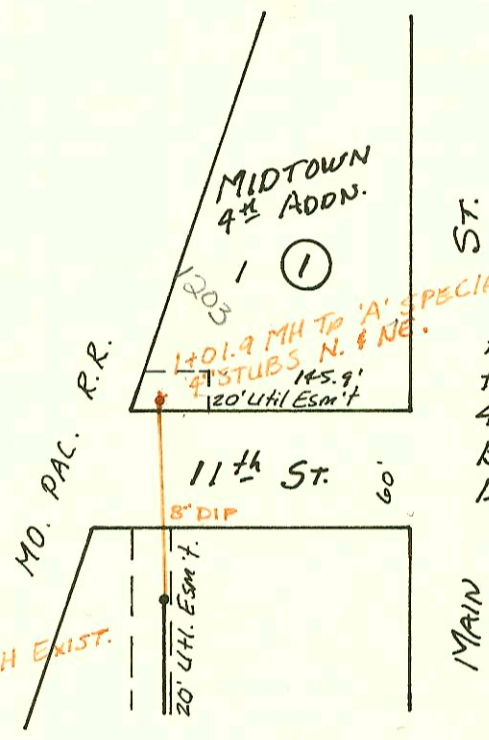 MIDTOWN
4th ADDN.
1 1
1203
ST.
1+01.9 MH Tp 'A' SPECIA
4" STUBS N. & NE.
145.9'
20' Util Esm't
MO. PAC. R.R.
11th ST.
60'
8" DIP
20' Util. Esm't.
H EXIST.
MAIN